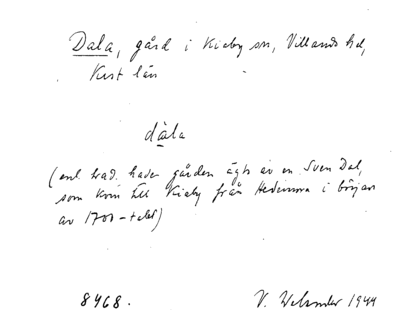 Dala, gård i Kiaby sn, Villands hd,
Krist län
dàla
(enl trad. hade gården ägts av en Sven Dal,
som kom till Kiaby från Hedemora i början
av 1700-talet)
8468. V. Welander 1944